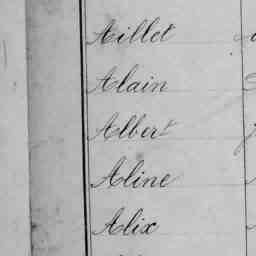 Aillet
Alain
Albert
Aline
Alix